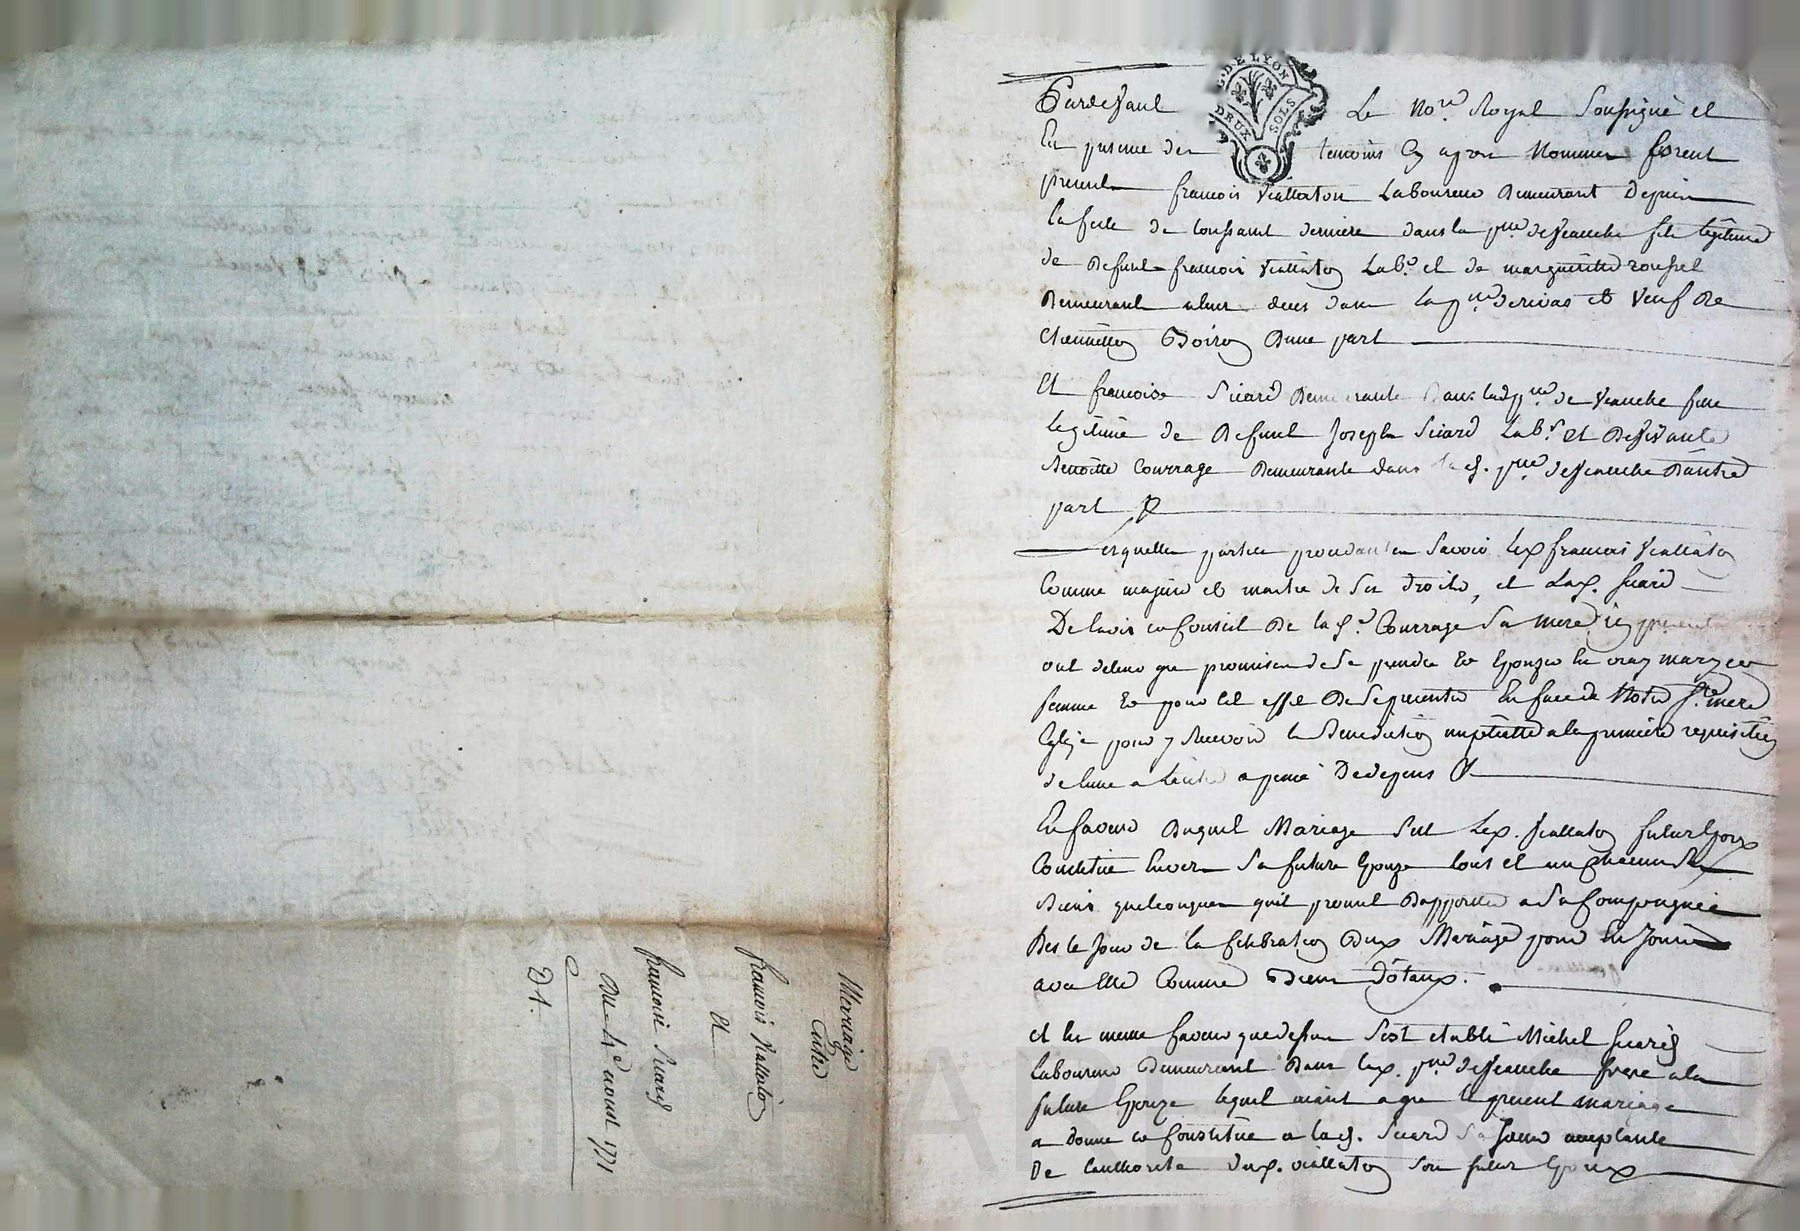 Pardevant Le No.re Royal Soussigné et
En presence des temoins Cy apres Nommes furent
presents francois Viallaton Laboureur Demeurant Depuis
la feste de toussaint derniere dans la p.sse de Veauche fils légitime
de Defunt francois Viallaton Lab.r et de margueritte roussel
Demeurant dans la p.sse de rivas et Veuf De
Boiron Dune part
Et francoise Sicard Demeurante Dans lad p.sse de Veauche fille
legitime de Defunt Joseph Sicard Lab.r Et De Vivante
Benoitte Courrage Demeurante dans la d. p.sse de Veauche Dautre
part
Lesquelles parties procedantes Savoir Le francois Viallaton
Comme majeur et maitre de Ses droits, et La Sicard
De lavis et Conseil De la d.e Courrage Sa mere icy presente
ont promis de Se prendre Et Epouser En vray mary et
femme Et pour Cet effet De Se presenter En face de Notre S.te mere
Eglize pour y Recevoir la Benediction nuptialle a la premiere requisition
de lune a Lautre a peine De depens
En faveur Duquel Mariage Viallaton futur Epoux
Constitue Envers Sa future Epouze tous et un chacun Ses
Biens quelconques quil promet Dapporter a Sa Compagnie
Des le Jour de la Celebration Dud Mariage pour En Jouir
avec Elle Comme Biens Dotaux.
et En meme faveur que dessus Sest etabli Michel Sicard
Laboureur Demeurant Dans lad. p.sse de Veauche frere a la
future Epouze lequel aiant agré le present mariage
a donné et Constitué a la d. Sicard Sa Soeur acceptante
De Lauthorité dud. viallaton Son futur Epoux
Mariage
Entre
francois Viallaton
Et
francoise Sicard
Du 4.e aoust 1771
DE LYON
DEUX SOLS